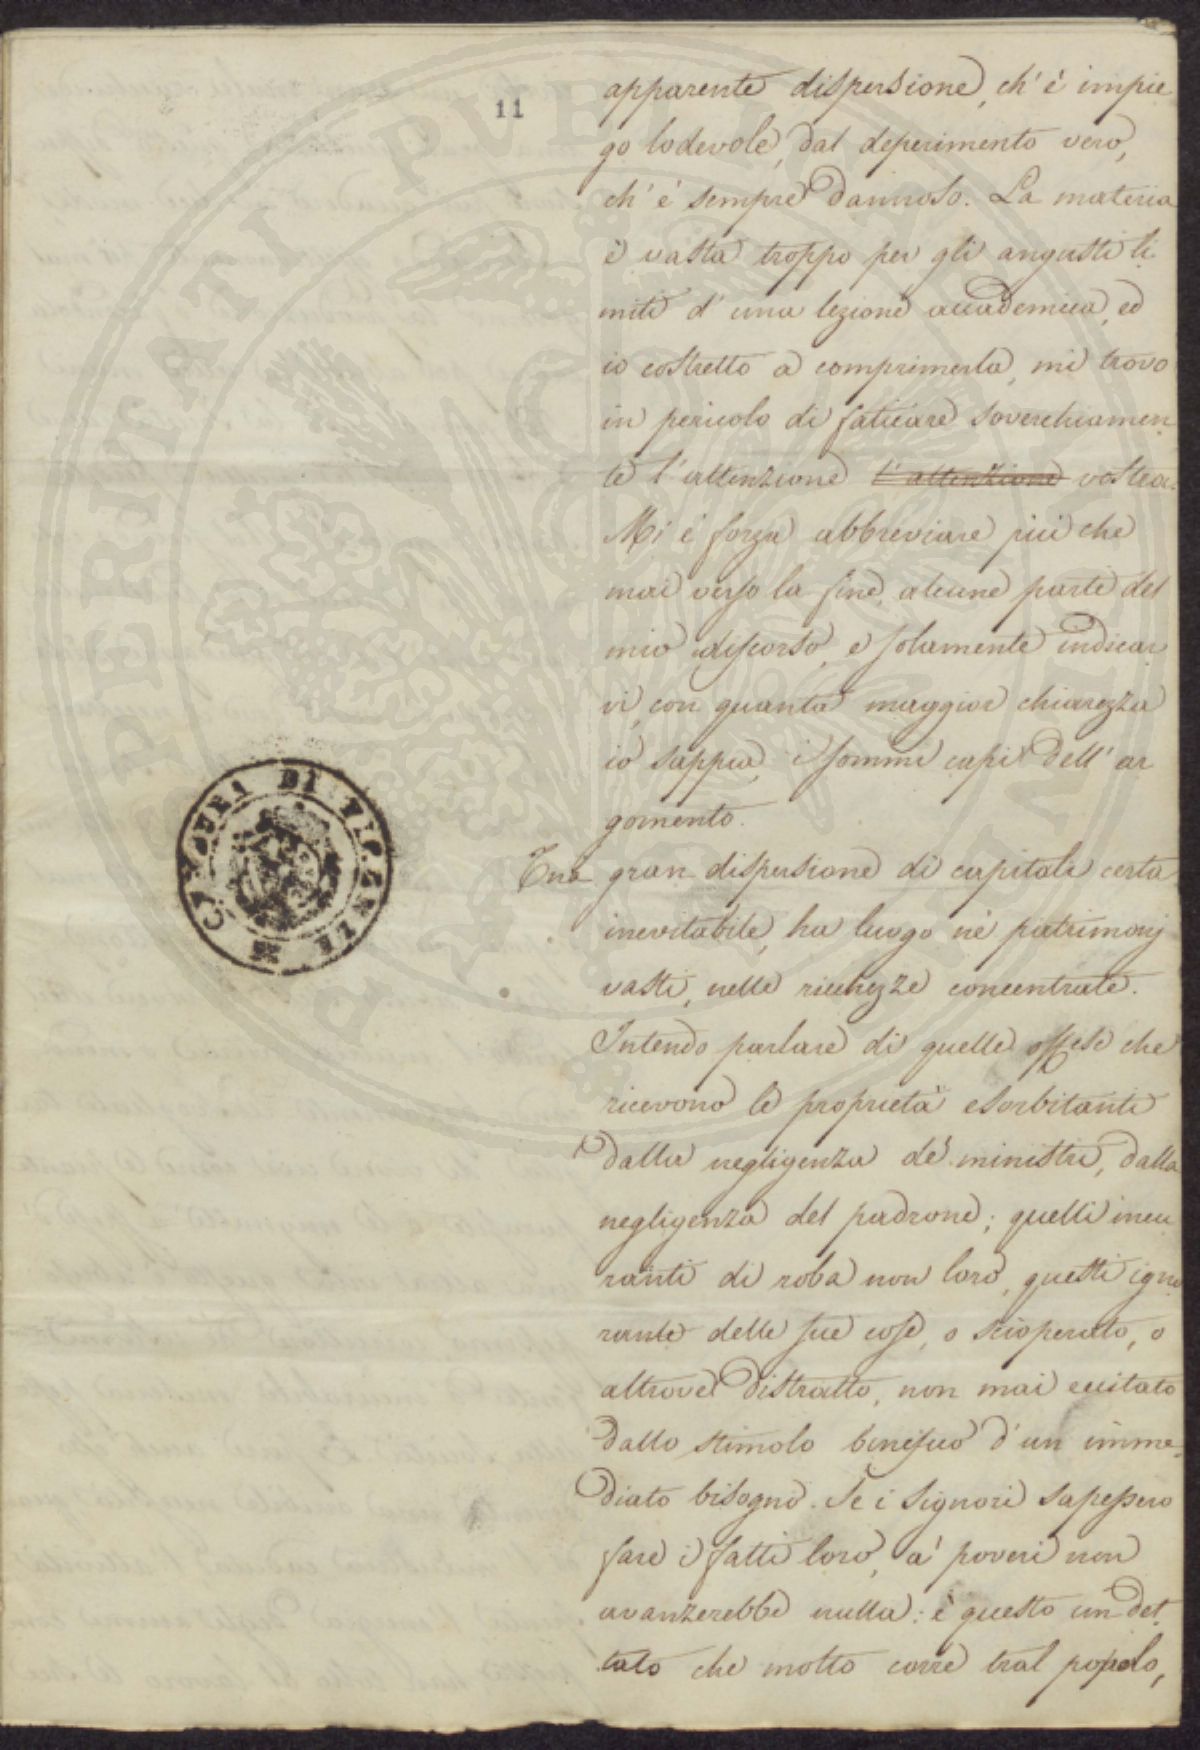 11
apparente dispersione, ch' è impie
go lodevole, dal deperimento vero,
ch' è sempre dannoso. La materia
è vasta troppo per gli angusti li
miti d' una lezione accademica, ed
io costretto a comprimerla, mi trovo
in pericolo di faticare soverchiamen
te l' attenzione l' attenzione vostra.
Mi è forza abbreviare più che
mai verso la fine, alcune parti del
mio discorso, e solamente indicar
vi, con quanta maggior chiarezza
io sappia, i sommi capi dell' ar
gomento.
Una gran dispersione di capitali certa
inevitabile, ha luogo ne' patrimonj
vasti, nelle ricchezze concentrate.
Intendo parlare di quelle offese che
ricevono le proprietà esorbitanti
dalla negligenza de' ministri, dalla
negligenza del padrone; quelli incu
ranti di roba non loro, questi igno
rante delle sue cose, o scioperato, o
altrove distratto, non mai eccitato
dallo stimolo benefico d' un imme
diato bisogno. Se i Signori sapessero
fare i fatti loro, a' poveri non
avanzerebbe nulla: è questo un det
tato che molto corre tral popolo,
CAMERA DI
PERITATI